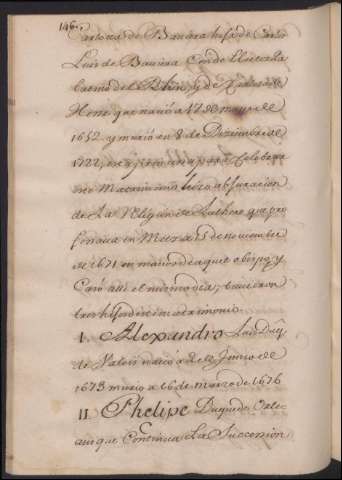 146.
Carlota de Baviera hija de Carlos
Luis de Baviera Conde Elector Pa
latino del Rhin, y de Carlota de
Hesse que nació a 17 de mayo de
1652 y murió en 8 de Diziembre de
1722, esta para celebrar
este Matrimonio hizo abjuracion
de la Religion de Luthero que pro
fesaua en Metz a 15 de noviembre
de 1671 en manos de aquel obispo, y
Casó alli el mismo dia; tuuieron
tres hijos de este matrimonio
I. Alexandro Luis Duq.
de Valois nació a 2 de Junio de
1673 murio a 16 de marzo de 1676
II. Phelipe Duque de Orle
ans que Continua la Succession